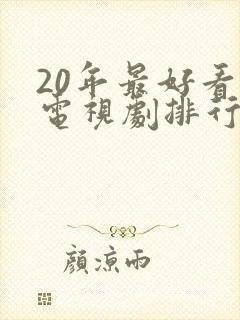 20年最好看
電視劇排行
顏涼雨